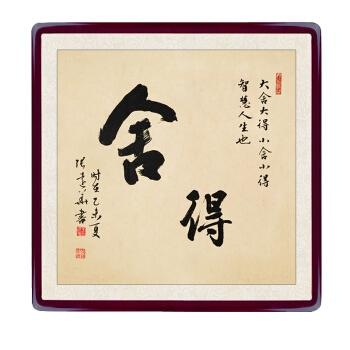 舍得
大舍大得小舍小得
智慧人生也
时在乙未夏